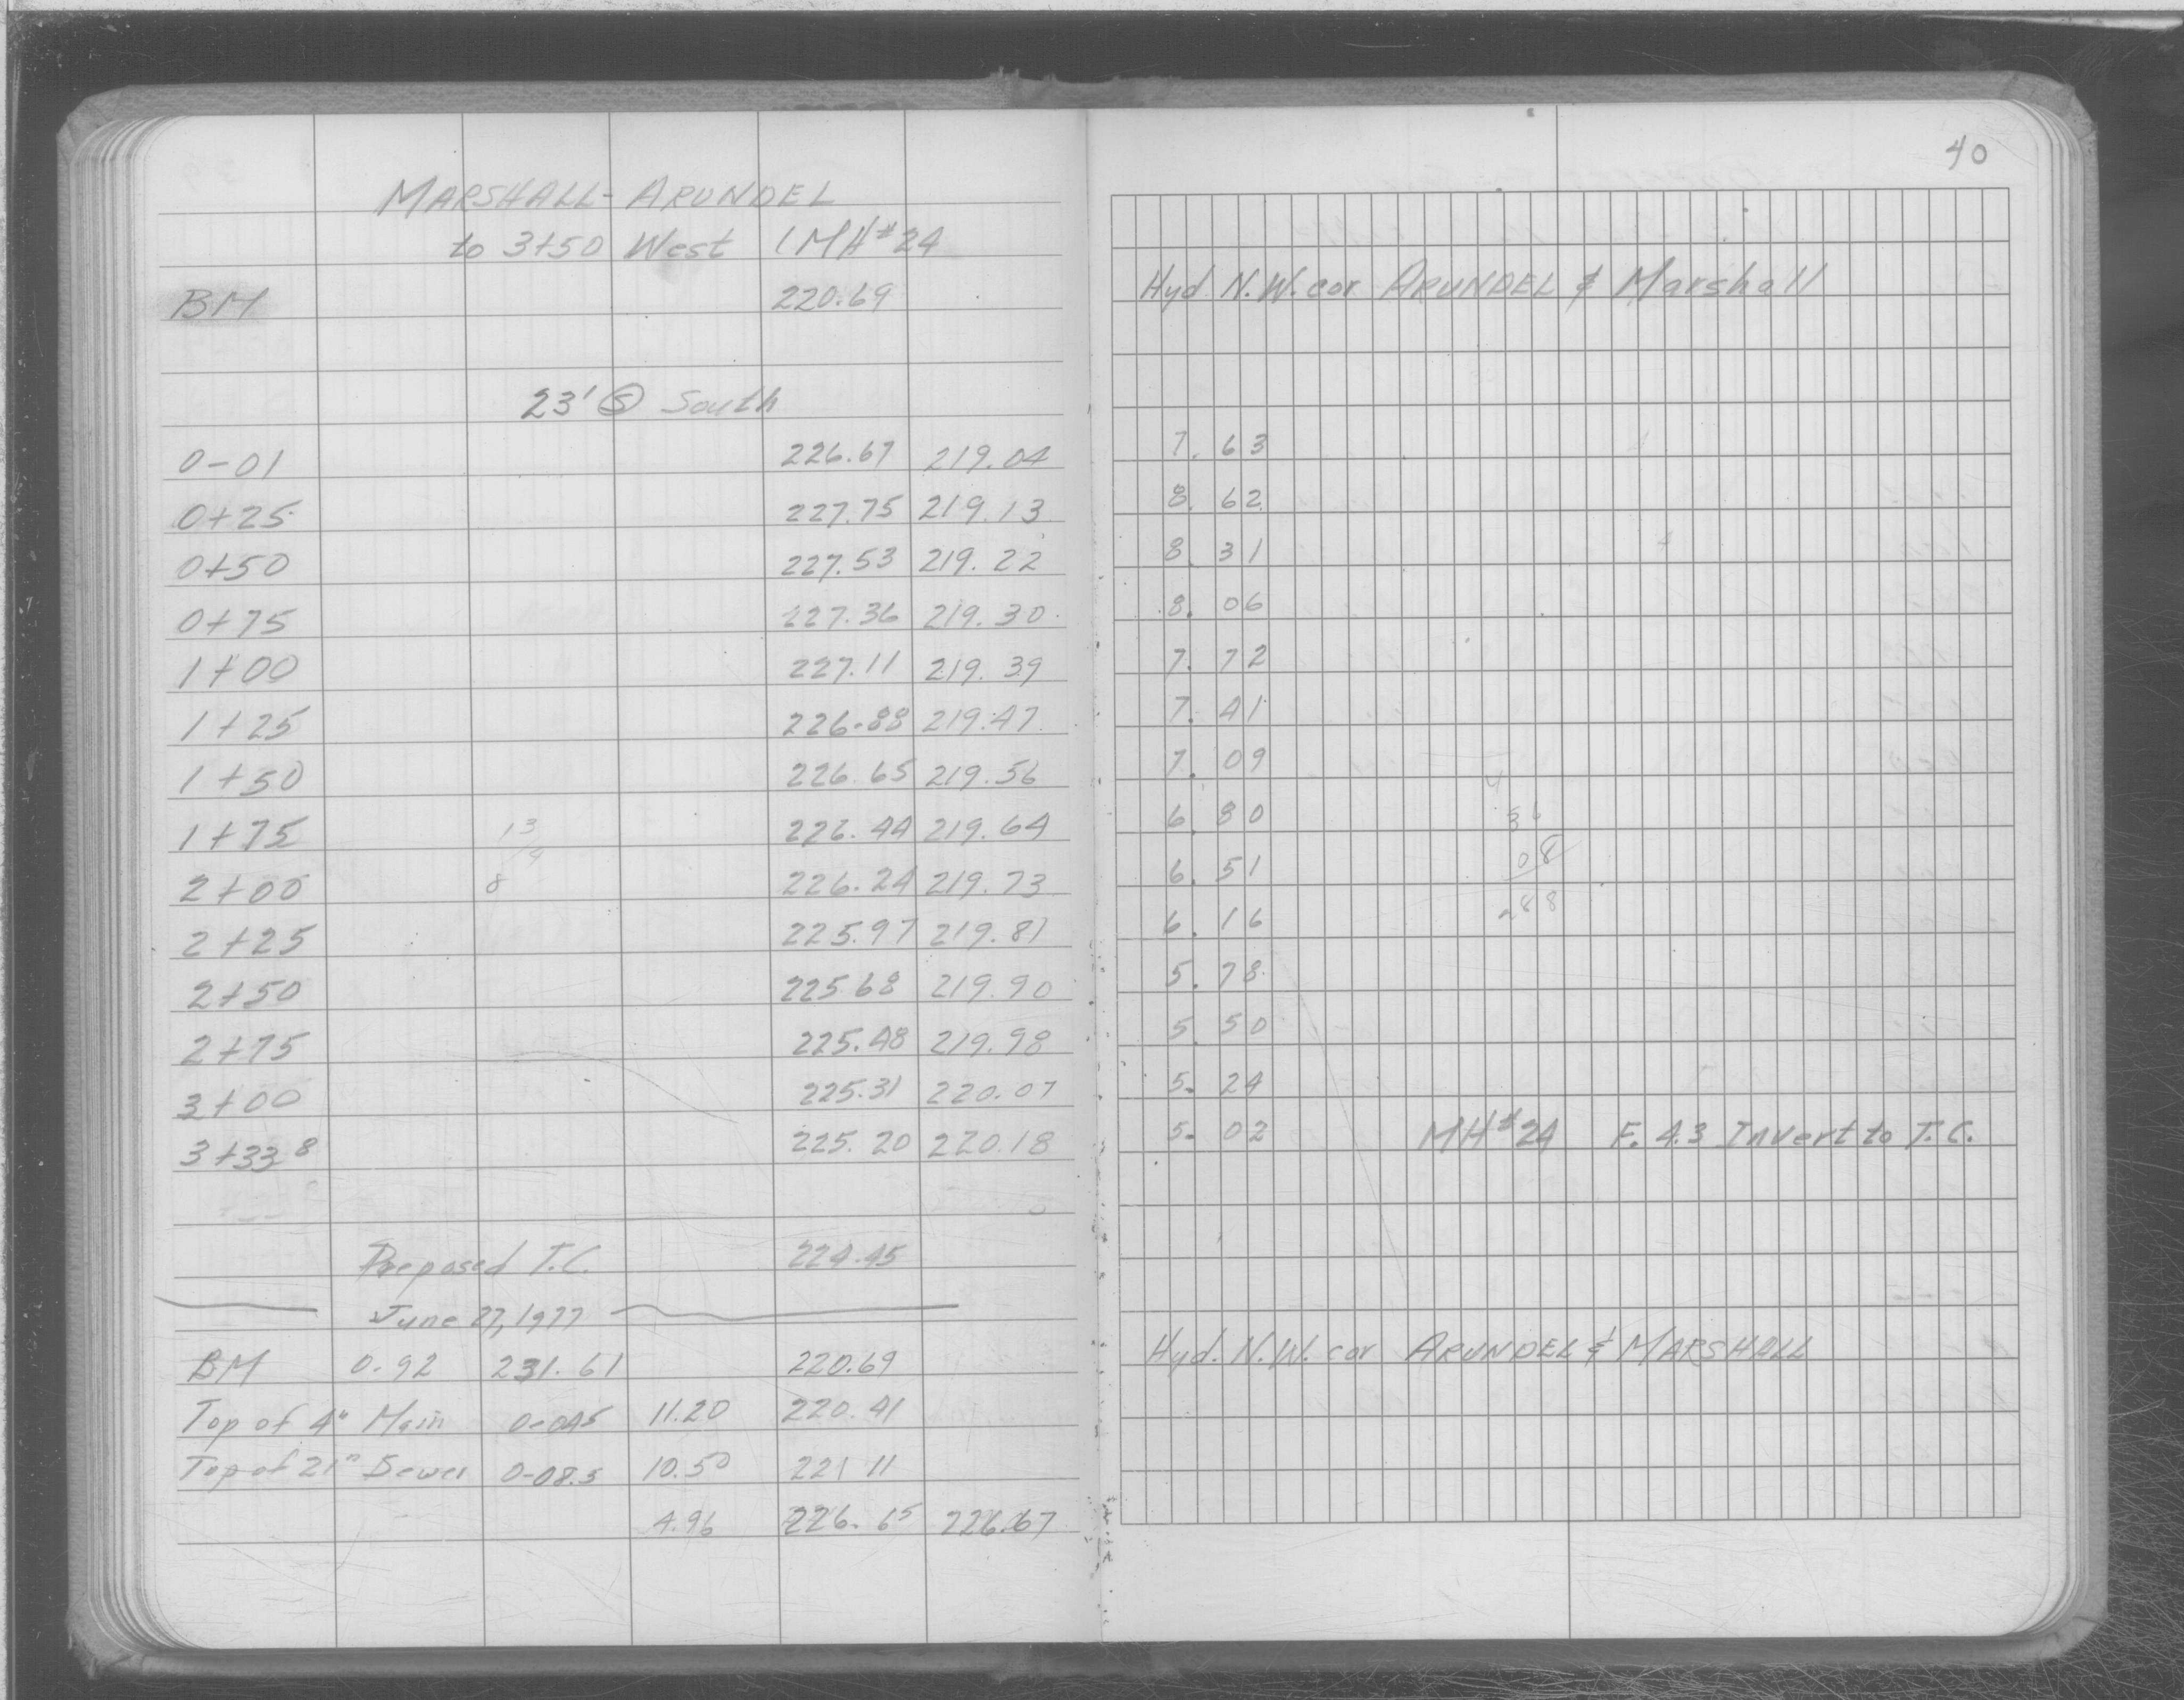 40
MARSHALL-ARUNDEL
to 3+50 West (MH#24
BM 220.69 Hyd. N.W. cor ARUNDEL & Marshall
23' Ⓢ South
0-01 226.67 219.04 7.63
0+25 227.75 219.13 8.62
0+50 227.53 219.22 8.31
0+75 227.36 219.30 8.06
1+00 227.11 219.39 7.72
1+25 226.88 219.47 7.41
1+50 226.65 219.56 7.09
1+75 226.44 219.64 6.80
2+00 226.24 219.73 6.51
2+25 225.97 219.81 6.16
2+50 225.68 219.90 5.78
2+75 225.48 219.98 5.50
3+00 225.31 220.07 5.24
3+33.8 225.20 220.18 5.02 MH#24 F. 4.3 Invert to T.C.
Proposed T.C. 224.45
June 27, 1977
BM 0.92 231.61 220.69 Hyd. N.W. cor ARUNDEL & MARSHALL
Top of 4" Main 0-04.5 11.20 220.41
Top of 21" Sewer 0-08.5 10.50 221 11
4.96 226.65 226.67